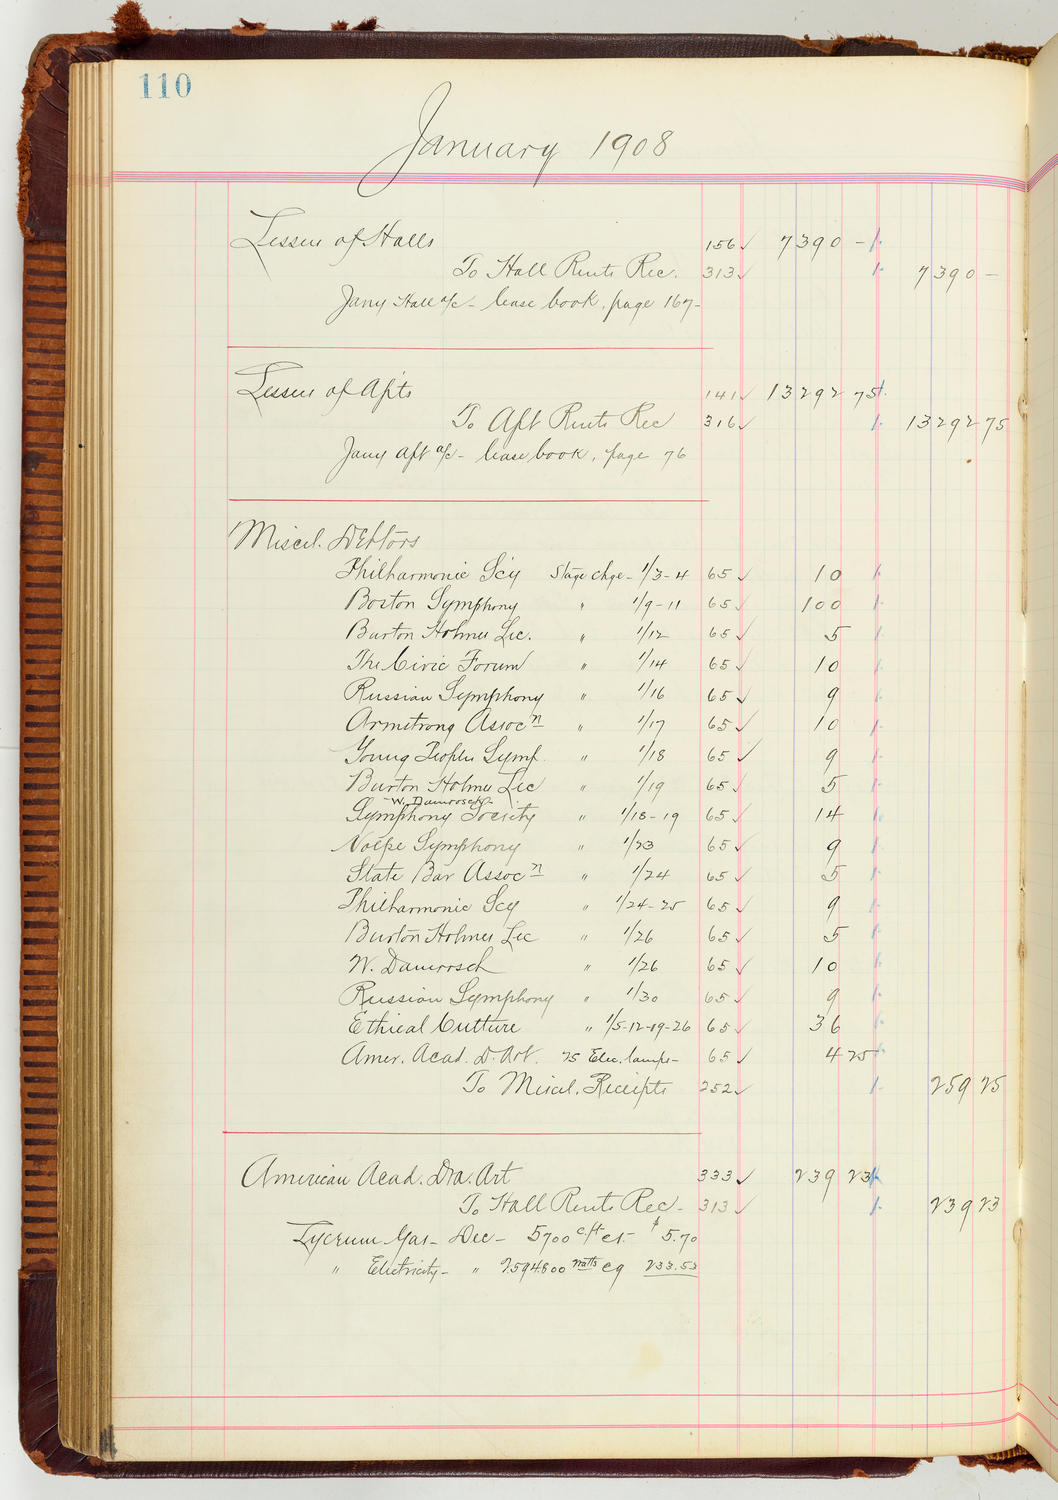 110
January 1908
Lessees of Halls 156 ✓ 7390 -
To Hall Rents Rec. 313 ✓ 7390 -
Jany Hall a/c - lease book, page 167 -
Lessees of Apts 141 ✓ 13292 75
To Apt Rents Rec 316 ✓ 13292 75
Jany Apt a/c - lease book, page 76
Miscel. Debtors
Philharmonic Sc'y Stage chge - 1/3-4 65 ✓ 10
Boston Symphony " 1/9-11 65 ✓ 100
Burton Holmes Lec. " 1/12 65 ✓ 5
The Civic Forum " 1/14 65 ✓ 10
Russian Symphony " 1/16 65 ✓ 9
Armstrong Assocn " 1/17 65 ✓ 10
Young Peoples Symp. " 1/18 65 ✓ 9
Burton Holmes Lec " 1/19 65 ✓ 5
- W. Damrosch -
Symphony Society " 1/18-19 65 ✓ 14
Volpe Symphony " 1/23 65 ✓ 9
State Bar Assocn " 1/24 65 ✓ 5
Philharmonic Scy " 1/24-25 65 ✓ 9
Burton Holmes Lec " 1/26 65 ✓ 5
W. Damrosch " 1/26 65 ✓ 10
Russian Symphony " 1/30 65 ✓ 9
Ethical Culture " 1/5-12-19-26 65 ✓ 36
Amer. Acad. D. Art. 75 Elec. lamps - 65 ✓ 4 25
To Miscel. Receipts 252 ✓ 259 25
American Acad. Dra. Art 333 ✓ 239 23
To Hall Rents Rec - 313 ✓ 239 23
Lyceum Gas - Dec - 5700 c/ft et - $ 5.70
" Electricity - " 2594800 watts eq 233.53